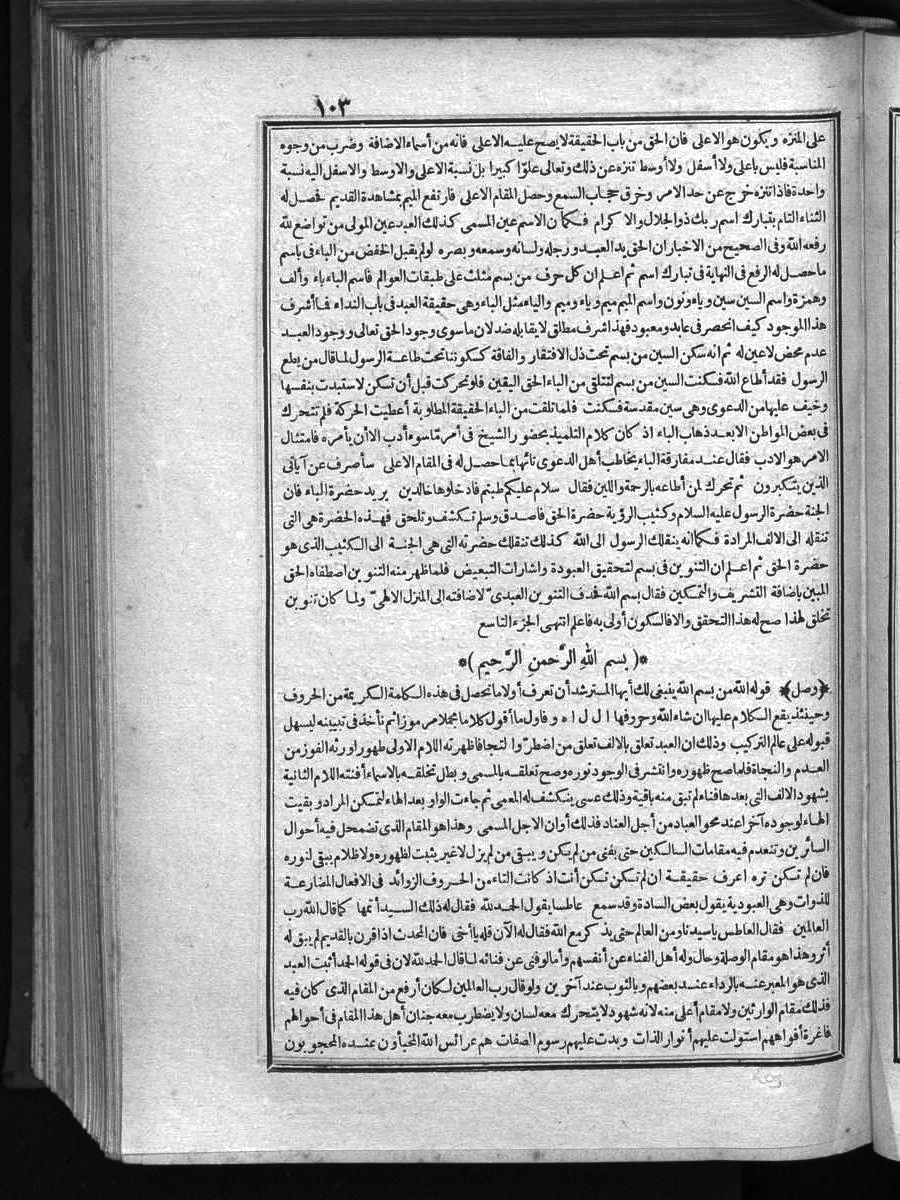 ١٠٣
على المنزه ويكون هو الاعلى فان الحق من باب الحقيقة لا يصح عليه الاعلى فانه من أسماء الاضافة وضرب من وجوه
المناسبة فليس باعلى ولا أسفل ولا أوسط تنزه عن ذلك وتعالى علوّا كبيرا بل نسبة الاعلى والاوسط والاسفل اليه نسبة
واحدة فاذا تنزه خرج عن حد الامر وخرق حجاب السمع وحصل المقام الاعلى فارتفع الميم بمشاهدة القديم فحصل له
الثناء التام بتبارك اسم ربك ذو الجلال والاكرام فكما أن الاسم عين المسمى كذلك العبد عين المولى من تواضع لله
رفعه الله وفى الصحيح من الاخبار ان الحق يد العبد ورجله ولسانه وسمعه وبصره لو لم يقبل الخفض من الباء فى باسم
ما حصل له الرفع فى النهاية فى تبارك اسم ثم اعلم ان كل حرف من بسم مثلث على طبقات العوالم فاسم الباء باء وألف
وهمزة واسم السين سين وياء ونون واسم الميم ميم وياء وميم والياء مثل الباء وهى حقيقة العبد فى باب النداء فما أشرف
هذا الموجود كيف انحصر فى عابد ومعبود فهذا شرف مطلق لا يقابله ضد لان ما سوى وجود الحق تعالى ووجود العبد
عدم محض لا عين له ثم انه سكن السين من بسم تحت ذل الافتقار والفاقة كسكوننا تحت طاعة الرسول لما قال من يطع
الرسول فقد أطاع الله فسكنت السين من بسم لتتلقى من الباء الحق اليقين فلو تحركت قبل أن تسكن لاستبدت بنفسها
وخيف عليها من الدعوى وهى سين مقدسة فسكنت فلما تلقت من الباء الحقيقة المطلوبة أعطيت الحركة فلم تتحرك
فى بعض المواطن الا بعد ذهاب الباء اذ كان كلام التلميذ بحضور الشيخ فى أمر مّا سوء أدب الا أن يأمره فامتثال
الامر هو الادب فقال عند مفارقة الباء يخاطب أهل الدعوى تائها بما حصل له فى المقام الاعلى سأصرف عن آياتى
الذين يتكبرون ثم تحرك لمن أطاعه بالرحمة واللين فقال سلام عليكم طبتم فادخلوها خالدين يريد حضرة الباء فان
الجنة حضرة الرسول عليه السلام وكثيب الرؤية حضرة الحق فاصدق وسلم تكشف وتلحق فهذه الحضرة هى التى
تنقله الى الالف المرادة فكما انه ينقلك الرسول الى الله كذلك تنقلك حضرته التى هى الجنة الى الكثيب الذى هو
حضرة الحق ثم اعلم ان التنوين فى بسم لتحقيق العبودة واشارات التبعيض فلما ظهر منه التنوين اصطفاه الحق
المبين باضافة التشريف والتمكين فقال بسم الله فحذف التنوين العبدىّ لاضافته الى المنزل الالهىّ ولما كان تنوين
تخلق لهذا صح له هذا التحقق والا فالسكون أولى به فاعلم انتهى الجزء التاسع
*( بسم الله الرَّحمن الرَّحيم )*
﴿وصل﴾ قوله الله من بسم الله ينبغى لك أيها المسترشد أن تعرف أولا ما تحصل فى هذه الكلمة الكريمة من الحروف
وحينئذ يقع الكلام عليها ان شاء الله وحروفها ا ل ل ا ه و فاول ما أقول كلاما مجملا مرموزا ثم نأخذ فى تبيينه ليسهل
قبوله على عالم التركيب وذلك ان العبد تعلق بالالف تعلق من اضطرّ والتجأ فاظهرته اللام الاولى ظهورا ورثه الفوز من
العدم والنجاة فلما صح ظهوره وانتشر فى الوجود نوره وصح تعلقه بالمسمى وبطل تخلقه بالاسماء أفنته اللام الثانية
بشهود الالف التى بعدها فناء لم تبق منه باقية وذلك عسى ينكشف له المعمى ثم جاءت الواو بعد الهاء لتمكن المراد وبقيت
الهاء لوجوده آخرا عند محو العباد من أجل العناد فذلك أوان الاجل المسمى وهذا هو المقام الذى تضمحل فيه أحوال
السائرين وتنعدم فيه مقامات السالكين حتى يفنى من لم يكن ويبقى من لم يزل لا غير يثبت لظهوره ولا ظلام يبقى لنوره
فان لم تكن تره اعرف حقيقة ان لم تكن تكن أنت اذ كانت التاء من الحروف الزوائد فى الافعال المضارعة
للذوات وهى العبودية يقول بعض السادة وقد سمع عاطسا يقول الحمد لله فقال له ذلك السيد أتمها كما قال الله رب
العالمين فقال العاطس يا سيدنا ومن العالم حتى يذكر مع الله فقال له الآن قله يا أخى فان المحدث اذا قرن بالقديم لم يبق له
أثر وهذا هو مقام الوصلة وحال وله أهل الفناء عن أنفسهم وأما لو فنى عن فنائه لما قال الحمد لله لان فى قوله الحمد أثبت العبد
الذى هو المعبر عنه بالرداء عند بعضهم وبالثوب عند آخرين ولو قال رب العالمين لكان أرفع من المقام الذى كان فيه
فذلك مقام الوارثين ولا مقام أعلى منه لانه شهود لا يتحرك معه لسان ولا يضطرب معه جنان أهل هذا المقام فى أحوالهم
فاغرة أفواههم استولت عليهم أنوار الذات وبدت عليهم رسوم الصفات هم عرائس الله المخبأون عنده المحجوبون